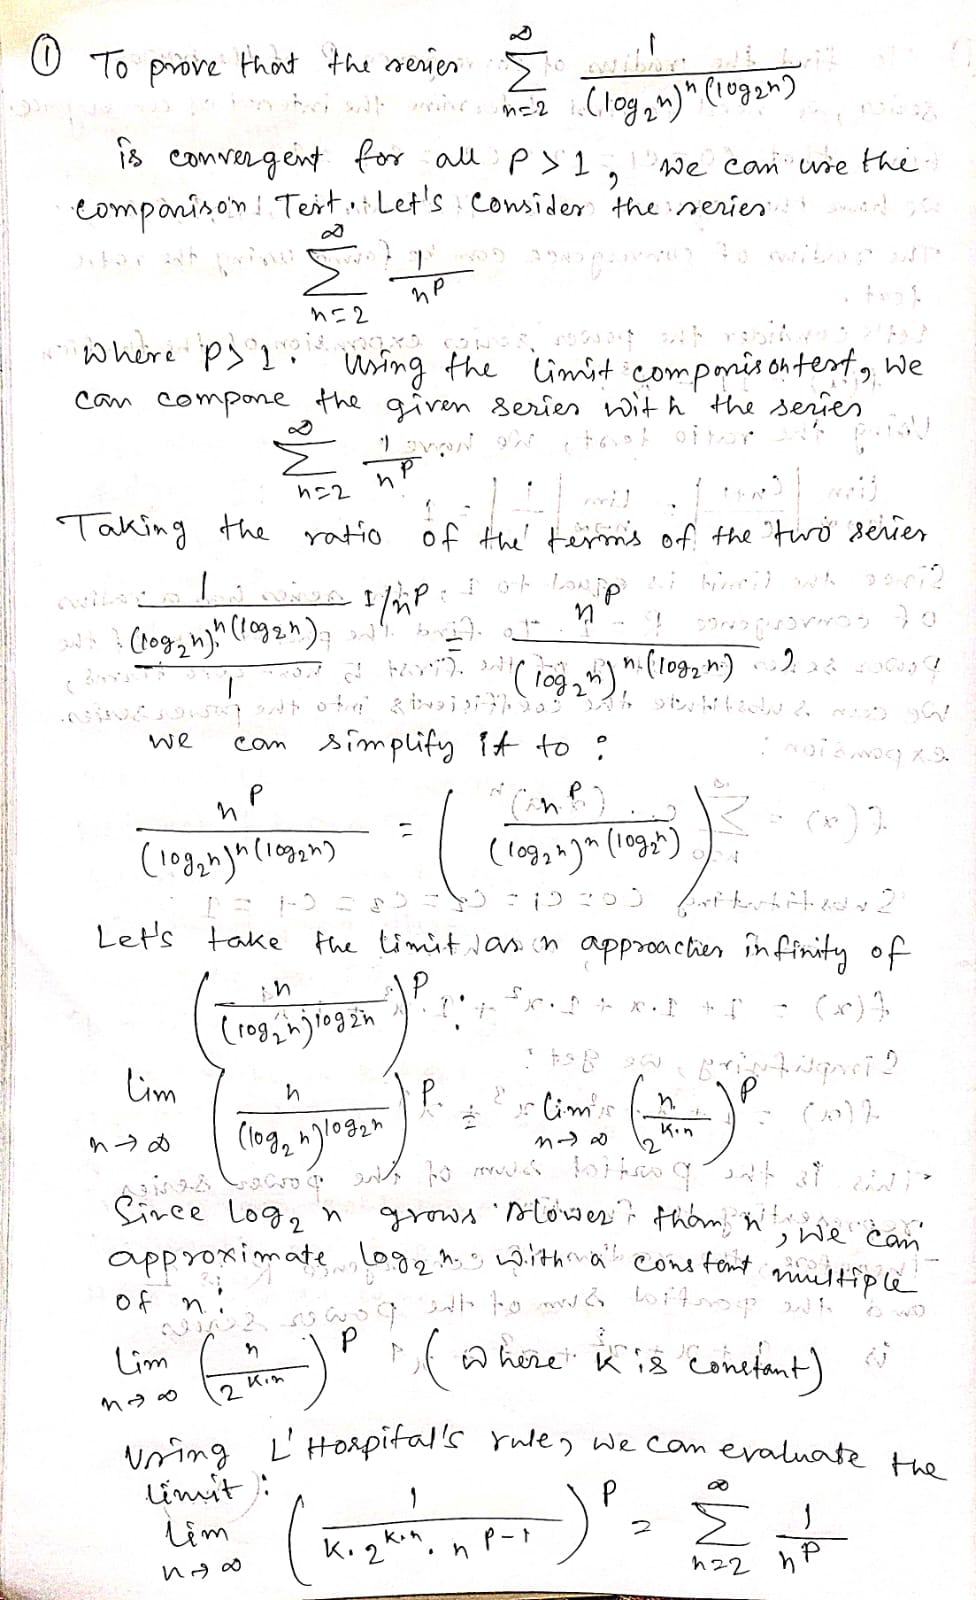 ① To prove that the series ∞ Σ n=2 1/(log₂n)ⁿ (log₂n)
is convergent for all P > 1, we can use the
comparison Test. Let's consider the series
∞ Σ n=2 1/n^P
where P > 1. Using the limit comparison test, we
can compare the given series with the series
∞ Σ n=2 1/n^P.
Taking the ratio of the terms of the two series
1/(log₂n)ⁿ (log₂n) / 1 1/n^P = n^P/(log₂n)ⁿ (log₂n)
we can simplify it to :
n^P/(log₂n)ⁿ (log₂n) = ( (n^P)/(log₂n)ⁿ (log₂n) )
Let's take the limit as n approaches infinity of
( n/(log₂n)^log₂n )^P
lim n→∞ ( n/(log₂n)^log₂n )^P = lim n→∞ ( n/2^k·n )^P
Since log₂ n grows slower than n, we can
approximate log₂n with a constant multiple
of n:
lim n→∞ ( n/2^k·n )^P, (where k is constant)
Using L' Hospital's rule, we can evaluate the
limit :
lim n→∞ ( 1/k·2^k·n · n^P-1 )^P = ∞ Σ n=2 1/n^P